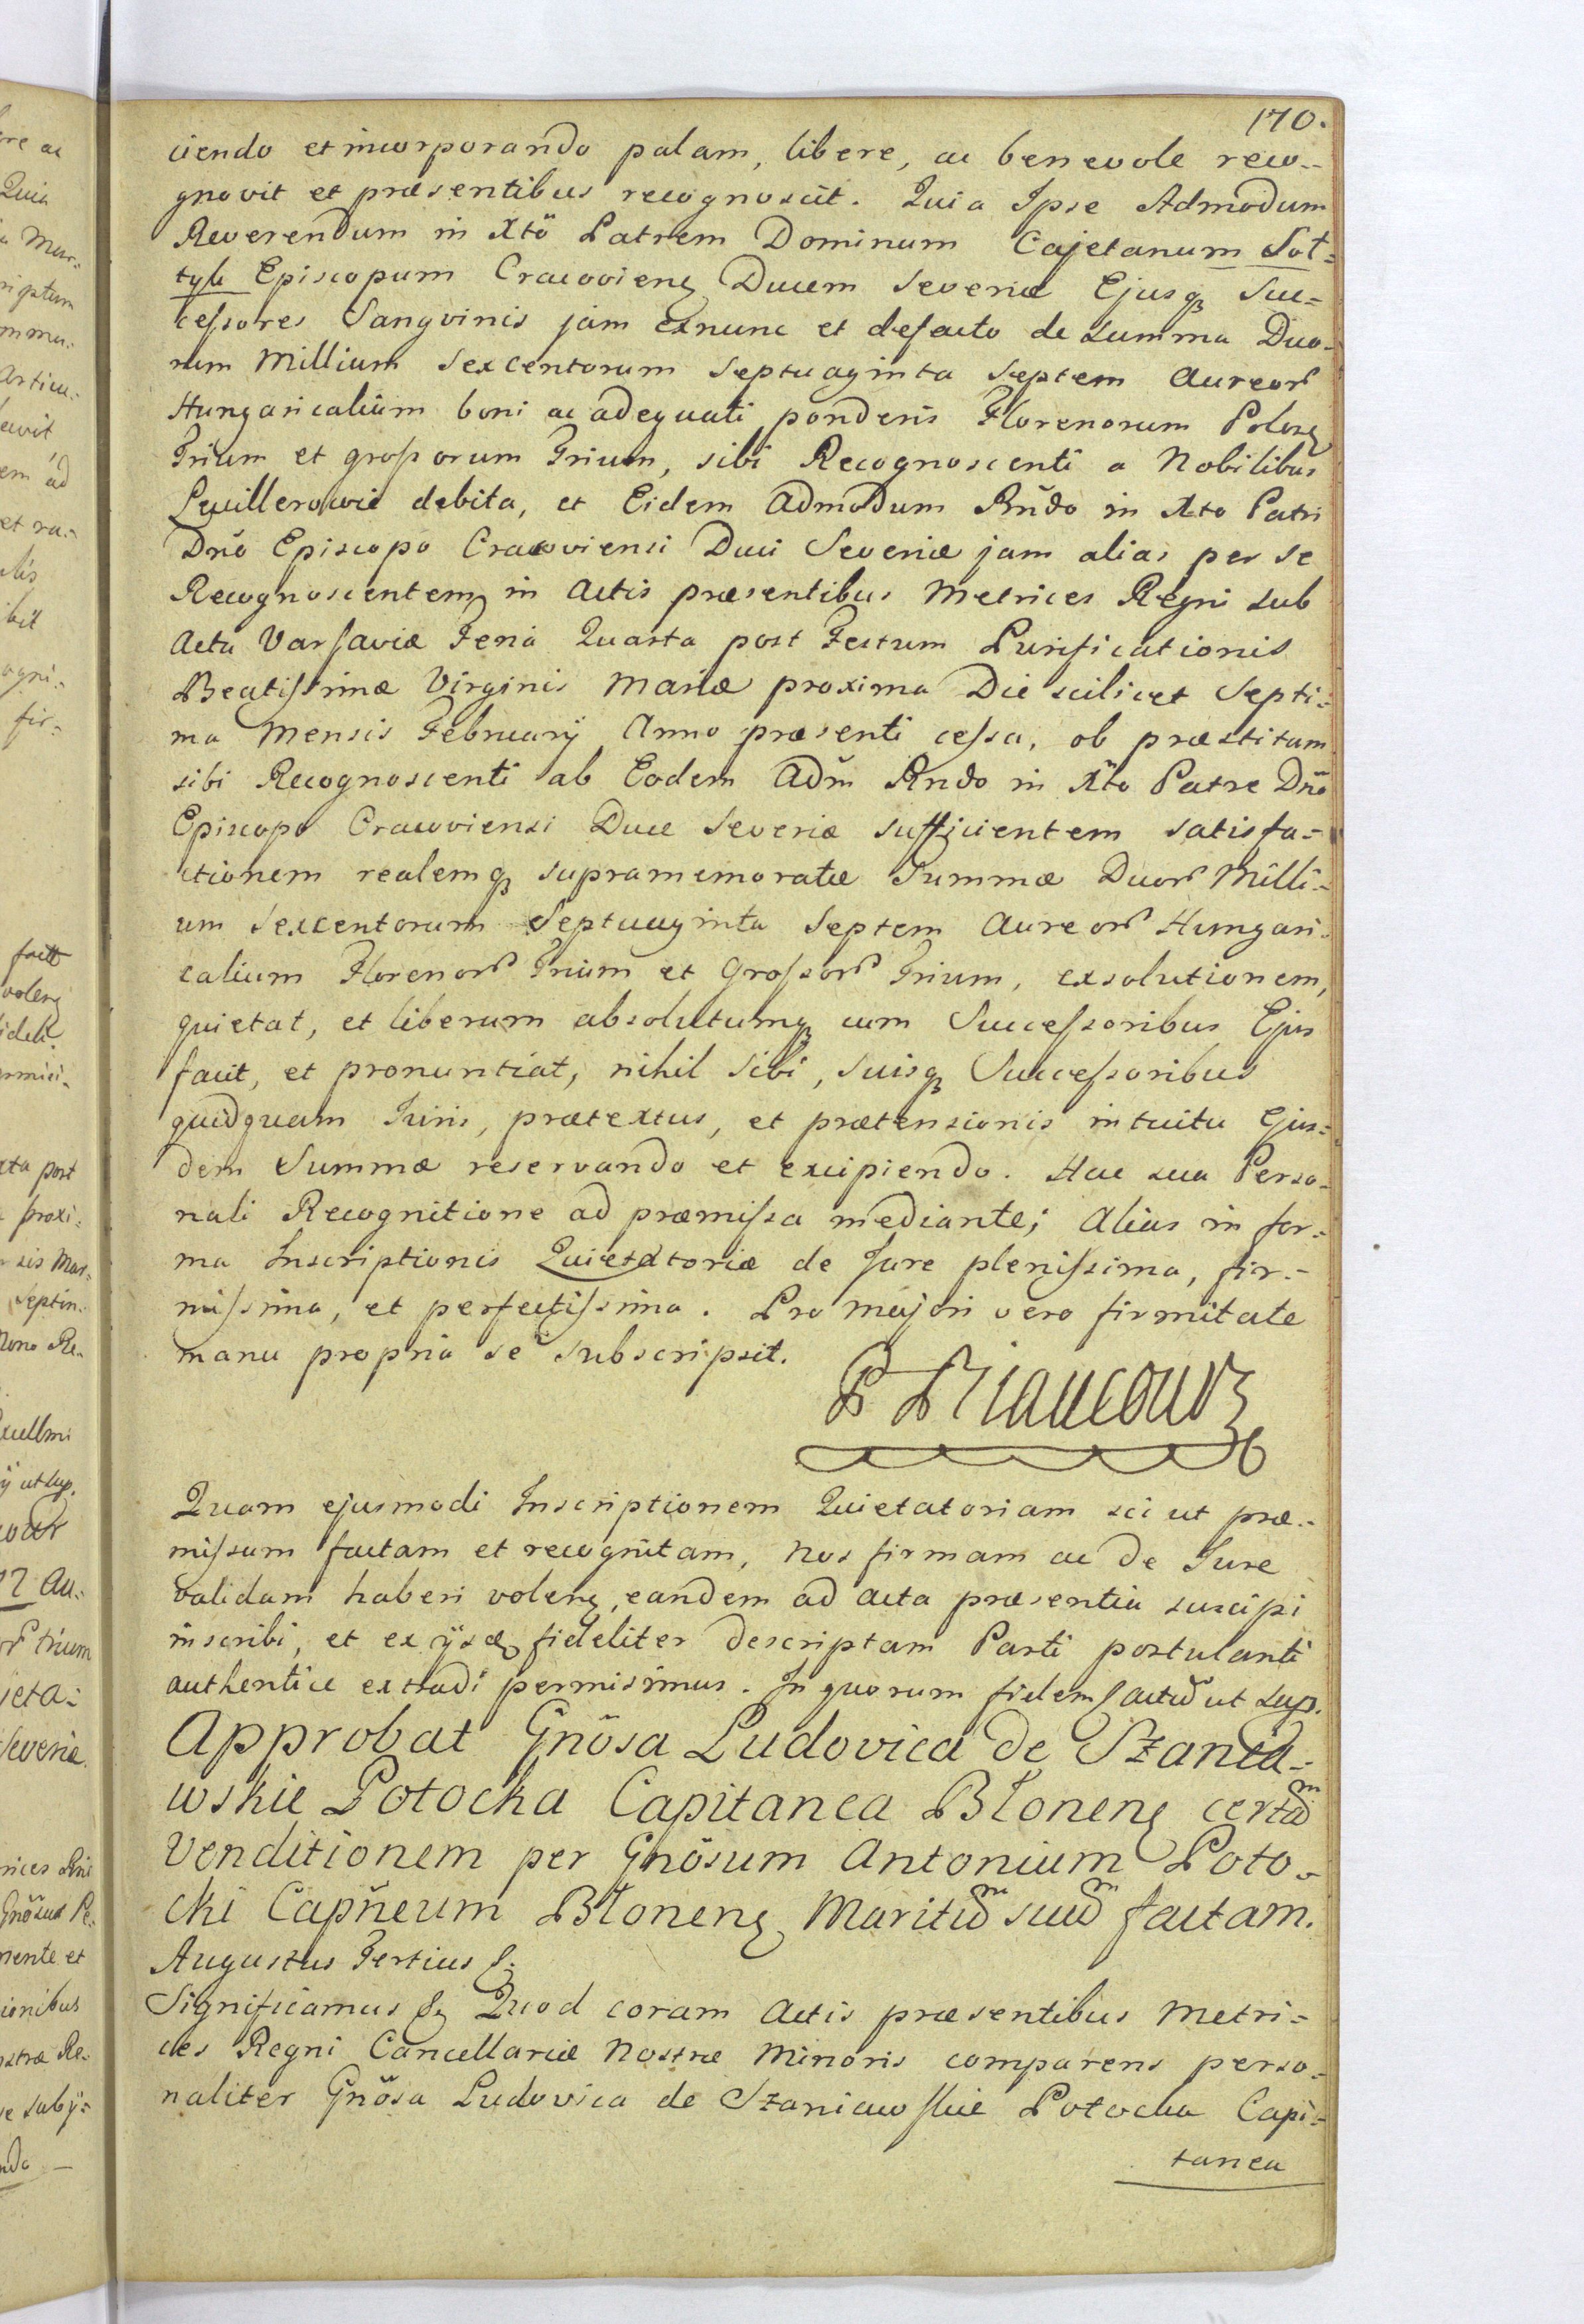 170.
ciendo et incorporando palam, libere, ac benevole reco-
gnovit et præsentibus recognoscit. Quia Ipse Admodum
Reverendum in Xtõ Patrem Dominum Cajetanum Sot=
tyk Episcopum Cracovienȩ Ducem Severiæ Ejusqȝ Suc=
ceſsores Sangvinis jam exnunc et defacto de summa Duo-
rum Millium Sexcentorum Septuaginta Septem Aureorũ
Hungaricalium boni ac adequati ponderis Florenorum Polonȩ
Trium et groſsorum Trium, sibi Recognoscenti a Nobilibus
debita, et Eidem Admodum Rñdo in Xto Patri
Dño Episcopo Cracoviensi Duci Severiæ jam alias per se
Recognoscentem in Actis præsentibus Metrices Regni sub
Actu Varſaviæ Feria Quarta post Festum Purificationis
Beatiſsimæ Virginis Mariæ proxima Die scilicet Septi=
ma Mensis Februarÿ Anno præsenti ceſsa, ob præstitam
sibi Recognoscenti ab Eodem Adm̃ Rndo in Xto Patre Dño
Episcopo Cracoviensi Duce Severiæ sufficientem satisfa=
ctionem realemqȝ supramemoratæ Summæ Duorũ Milli=
um Sexcentorum Septuaginta Septem Aureorũ Hungari=
calium Florenorũ Trium et Groſsorũ Trium, exsolutionem,
quietat, et liberum absolutumqȝ cum Succeſsoribus Ejus
facit, et pronuntiat, nihil Sibi, suisqȝ Succeſsoribus
quidquam Juris, prætextus, et prætensionis intuitu Ejus=
dem Summæ reservando et excipiendo. Hac sua Perso=
nali Recognitione ad præmiſsa mediante; Alias in for=
ma Inscriptionis Quietatoriæ de Jure pleniſsima, fir=
miſsima, et perfectiſsima. Pro majori vero firmitate
manu propria se subscripsit.
P Riaucour
Quam ejusmodi Inscriptionem Quietatoriam sci ut præ=
miſsum factam et recognitam, Nos firmam ac de Jure
validam haberi volenȩ, eandem ad acta præsentia suscipi
inscribi, et ex ÿsdȩ fideliter descriptam Parti postulanti
authentice extradi permisimus. In quorum fidem ſ actũ ut sup.
Approbat Gnõsa Ludovica de Szania=
wskie Potocka Capitanea Błonenȩ certãm
Venditionem per Gnõsum Antonium Poto=
cki Capñeum Błonenȩ Maritũm suũm factam.
Augustus Tertius &
Significamus & Quod coram Actis præsentibus Metri=
ces Regni Cancellariæ Nostræ Minoris comparens perso=
naliter Gnõsa Ludovica de Szaniawſkie Potocka Capi=
tanea